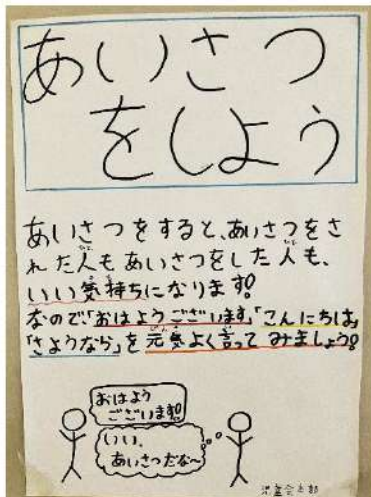 あいさつ
をしよう
あいさつをすると、あいさつをさ
れた人もあいさつをした人も、
いい気持ちになります!
なので「おはようございます」「こんにちは」
「さようなら」を元気よく言ってみましょう!
おはよう
ございます!
いい、
あいさつだな〜